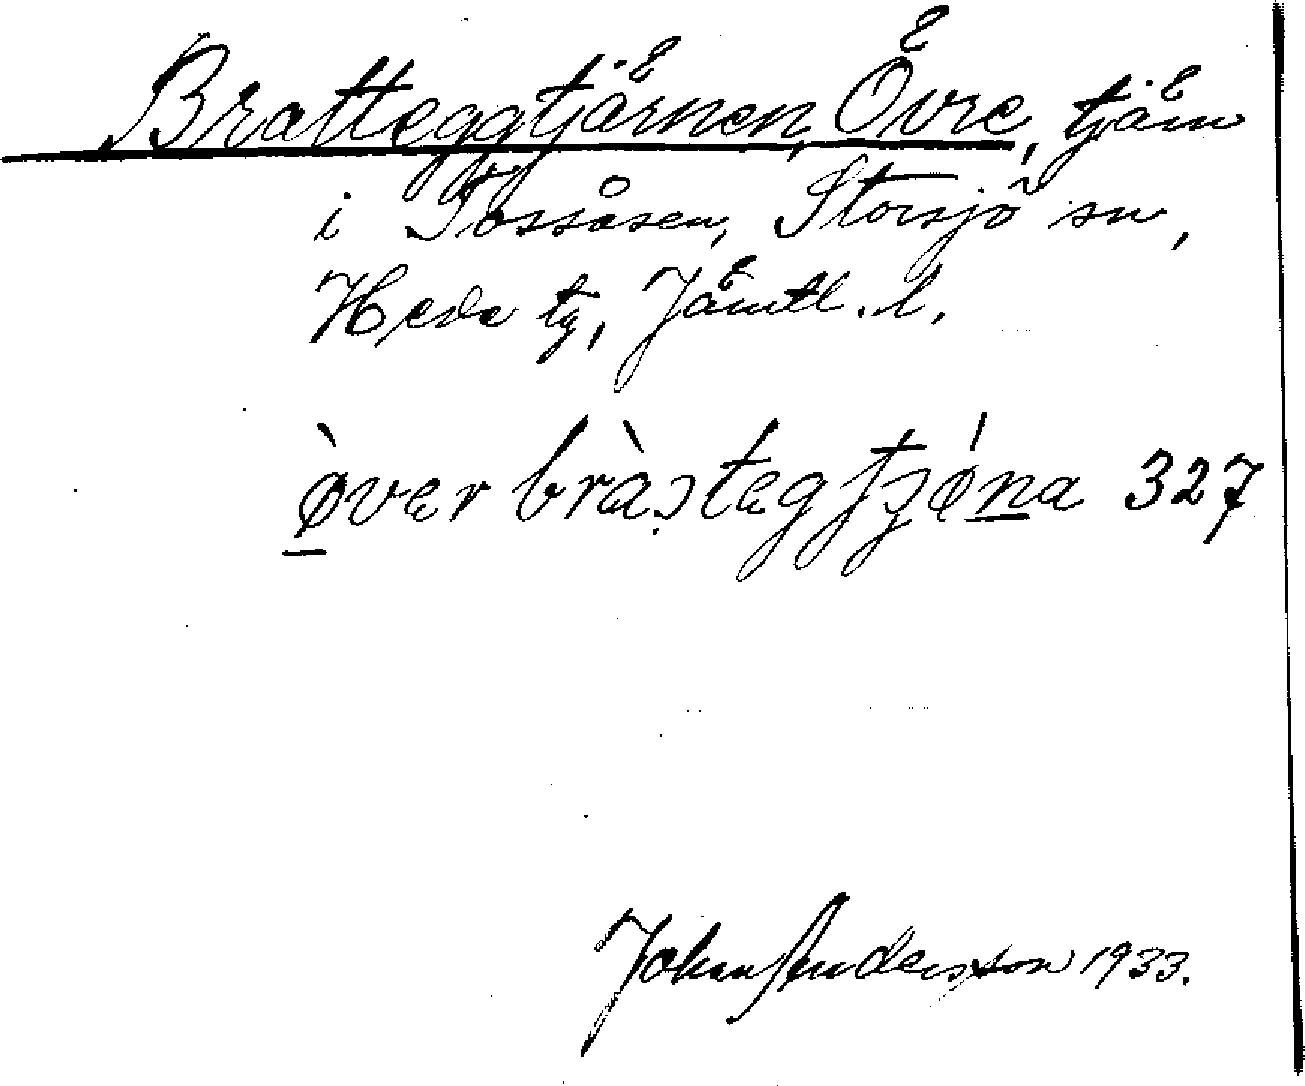 Bratteggtjärnen, Övre, tjärn
i Tossåsen, Storsjö sn,
Hede tg, Jämtl. l.
ø̀ver bràstegtjǿna 327
Johan Andersson 1933.